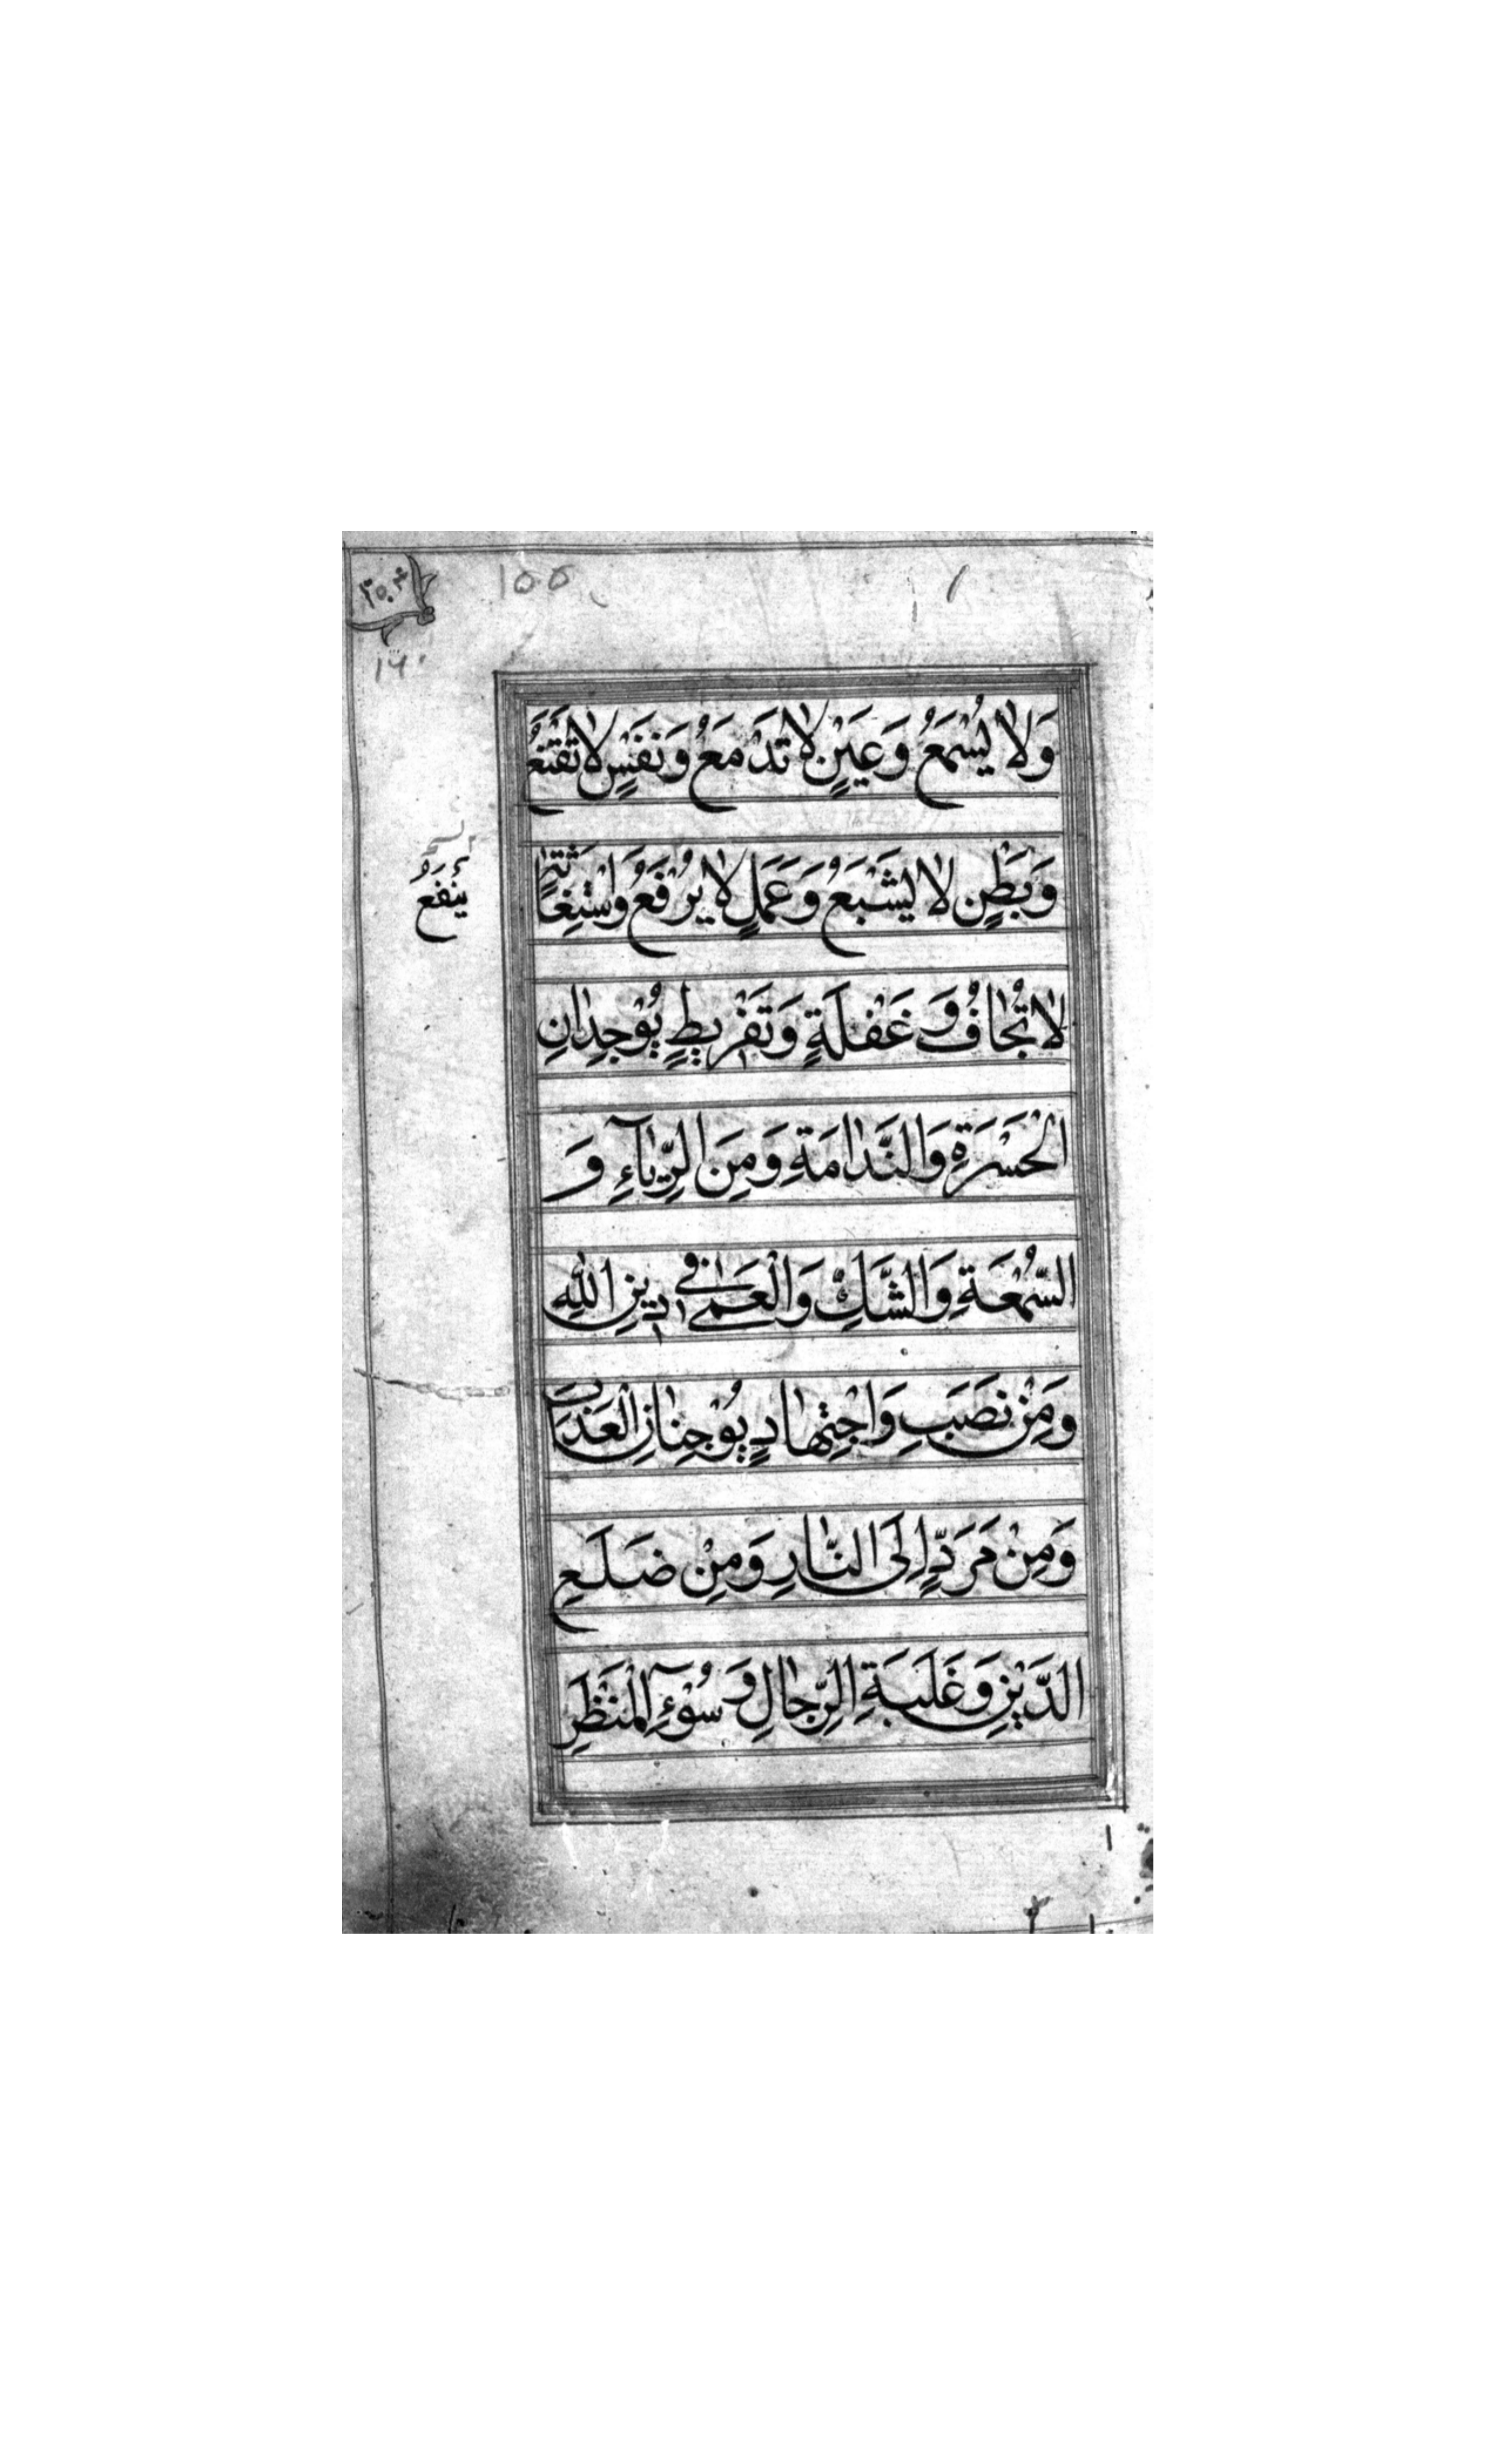 155
١٦٠
وَلاٰ يُسْمَعُ وَعَيْنٍ لاٰ تَدْمَعُ وَنَفْسٍ لاٰ تَقْنَعُ
وَبَطْنٍ لاٰ يَشْبَعُ وَعَمَلٍ لاٰ يُرْفَعُ وَاسْتِغٰاثَةٍ
يَنْفَعُ
لاٰ تُجٰابُ وَغَفْلَةٍ وَتَفْرِيطٍ يُوْجِدٰانِ
الْحَسْرَةِ وَالنَّدٰامَةِ وَمِنَ الرِّيٰآءِ وَ
السُّمْعَةِ وَالشَّكِّ وَالْعَمٰى فِي دِينِ اللّٰهِ
وَمِنْ نَصَبٍ وَاجْتِهٰادٍ يُوْجِبٰانِ الْعَذٰابَ
وَمِنْ مَرَدٍّ اِلَى النّٰارِ وَمِنْ ضَلَعِ
الدَّيْنِ وَغَلَبَةِ الرِّجٰالِ وَسُوْٓءِ الْمَنْظَرِ